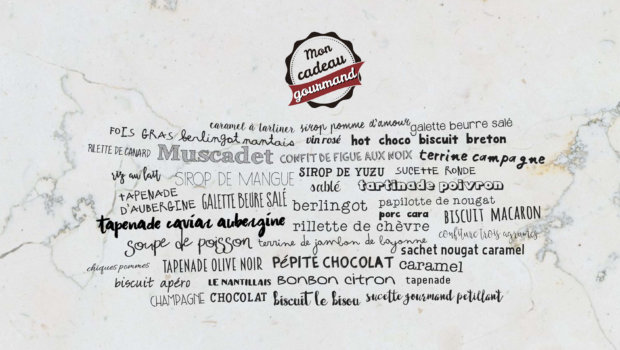 Mon
cadeau
gourmand
caramel à tartiner sirop pomme d'amour galette beurre salé
FOIS GRAS berlingot nantais vin rosé hot choco biscuit breton
RILETTE DE CANARD Muscadet CONFIT DE FIGUE AUX NOIX terrine campagne
riz au lait SIROP DE MANGUE SIROP DE YUZU SUCETTE RONDE
sablé tartinade poivron
TAPENADE
D'AUBERGINE GALETTE BEURE SALÉ berlingot papilote de nougat
porc cara BISCUIT MACARON
tapenade caviar aubergine rillette de chèvre confiture trois agrumes
soupe de poisson terrine de jambon de bayonne sachet nougat caramel
chiques pommes TAPENADE OLIVE NOIR PÉPITE CHOCOLAT caramel
biscuit apéro LE NANTILLAIS BONBON CITRON tapenade
CHAMPAGNE CHOCOLAT biscuit le bisou sucette gourmand petillant